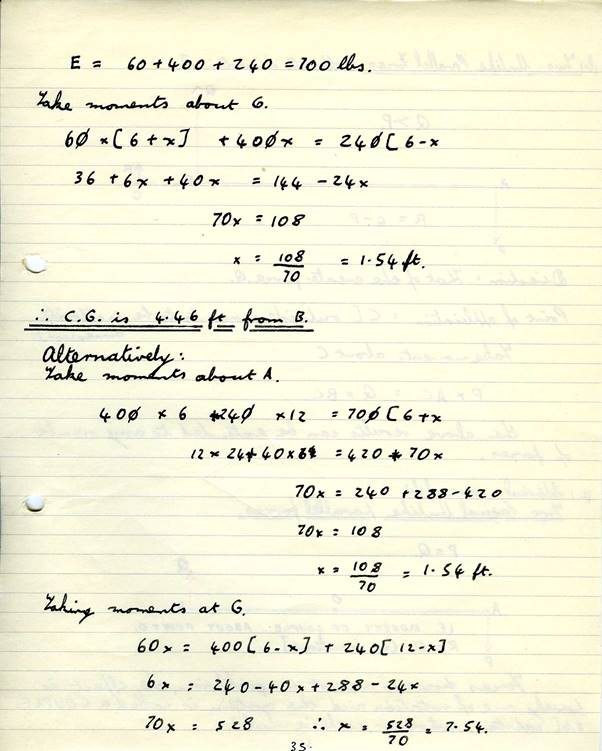 E = 60 + 400 + 240 = 700 lbs.
Take moments about G.
60 × [6 + x] + 400x = 240[6 - x
36 + 6x + 40x = 144 - 24x
70x = 108
x = 108/70 = 1·54 ft.
∴ C.G. is 4·46 ft from B.
Alternatively:
Take moments about A.
400 × 6 + 240 × 12 = 700[6 + x
12 × 24 + 40 × 6 = 420 + 70x
70x = 240 + 288 - 420
70x = 108
x = 108/70 = 1·54 ft.
Taking moments at G.
60x = 400[6 - x] + 240[12 - x]
6x = 240 - 40x + 288 - 24x
70x = 528 ∴ x = 528/70 = 7·54.
35.